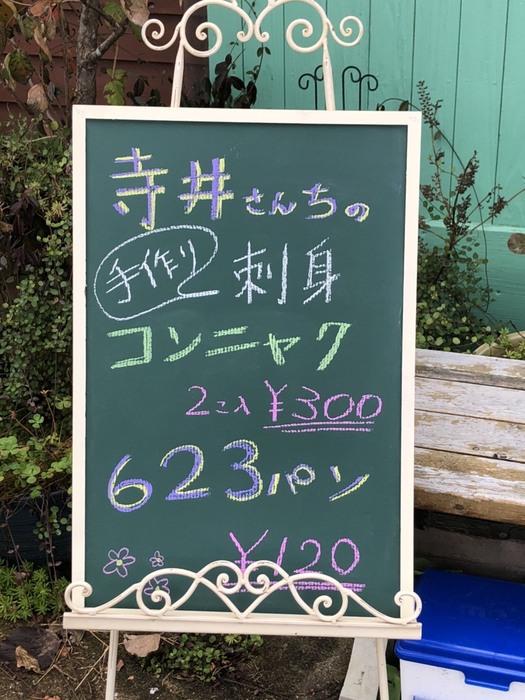 寺井さんちの
手作り 刺身
コンニャク
2コ入 ¥300
623パン
¥120